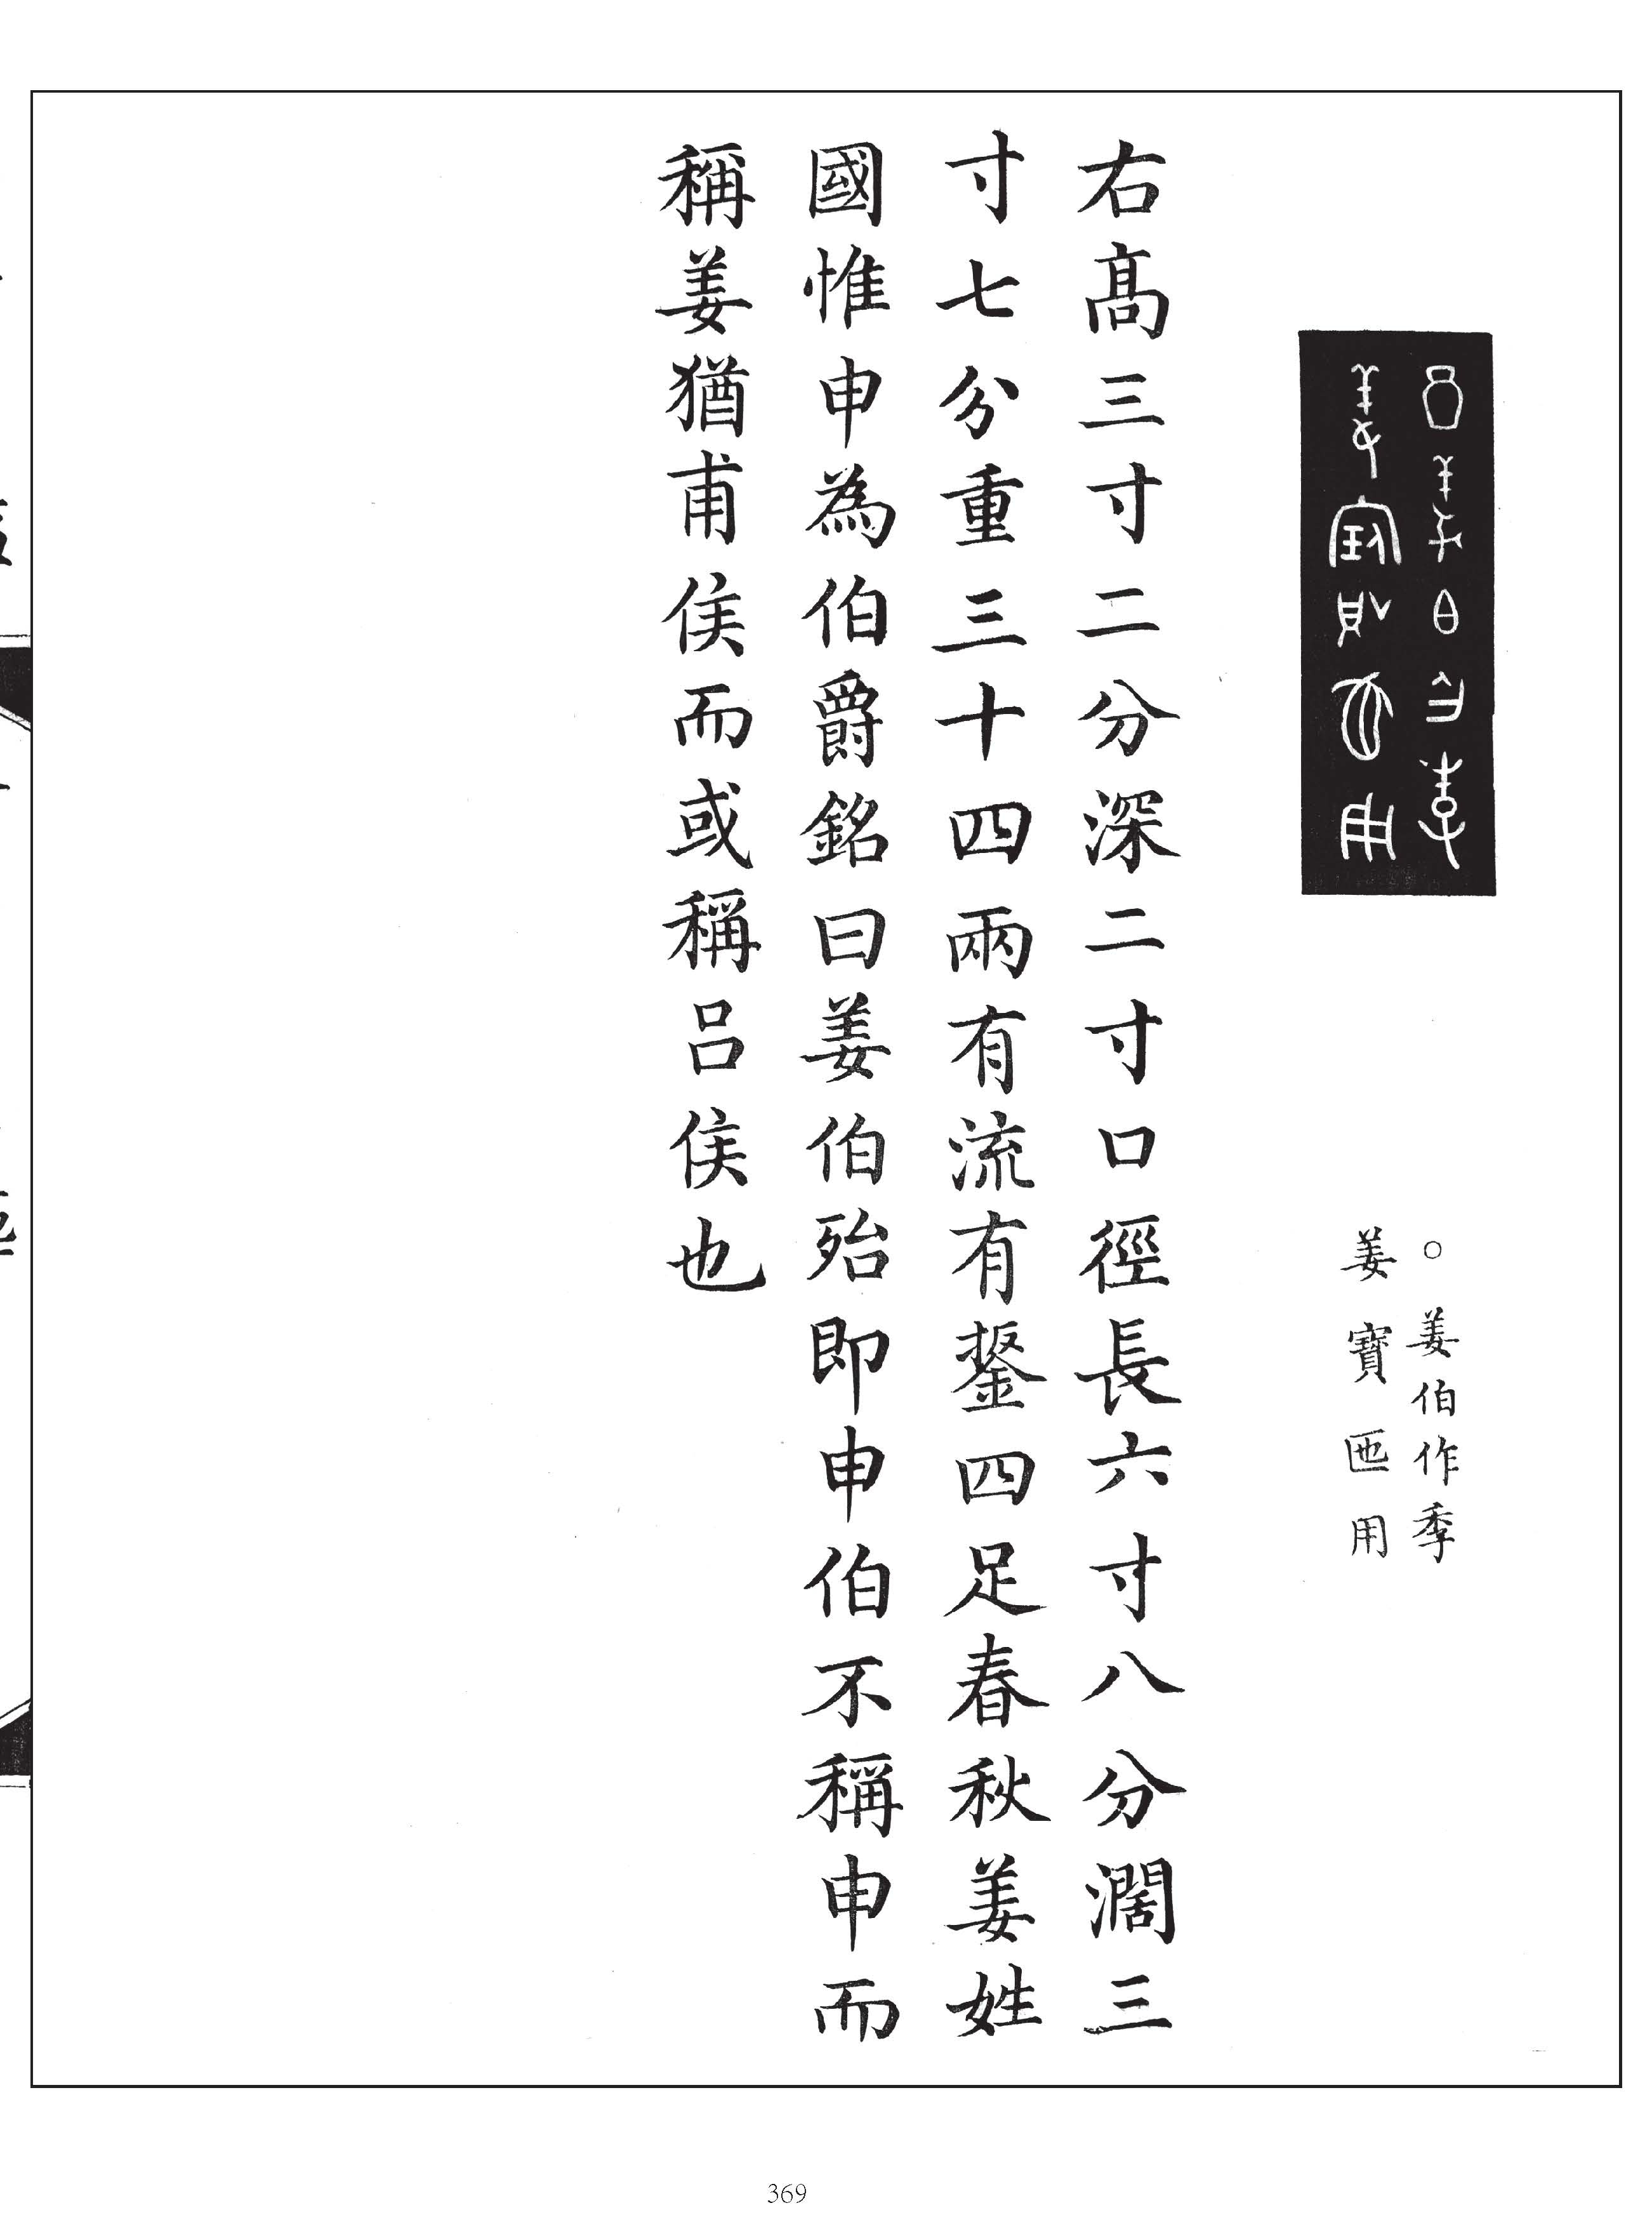 ○姜伯作季
姜寶匜用
右高三寸二分深二寸口徑長六寸八分濶三
寸七分重三十四兩有流有鋬四足春秋姜姓
國惟申為伯爵銘曰姜伯殆即申伯不稱申而
稱姜猶甫侯而或稱呂侯也
369